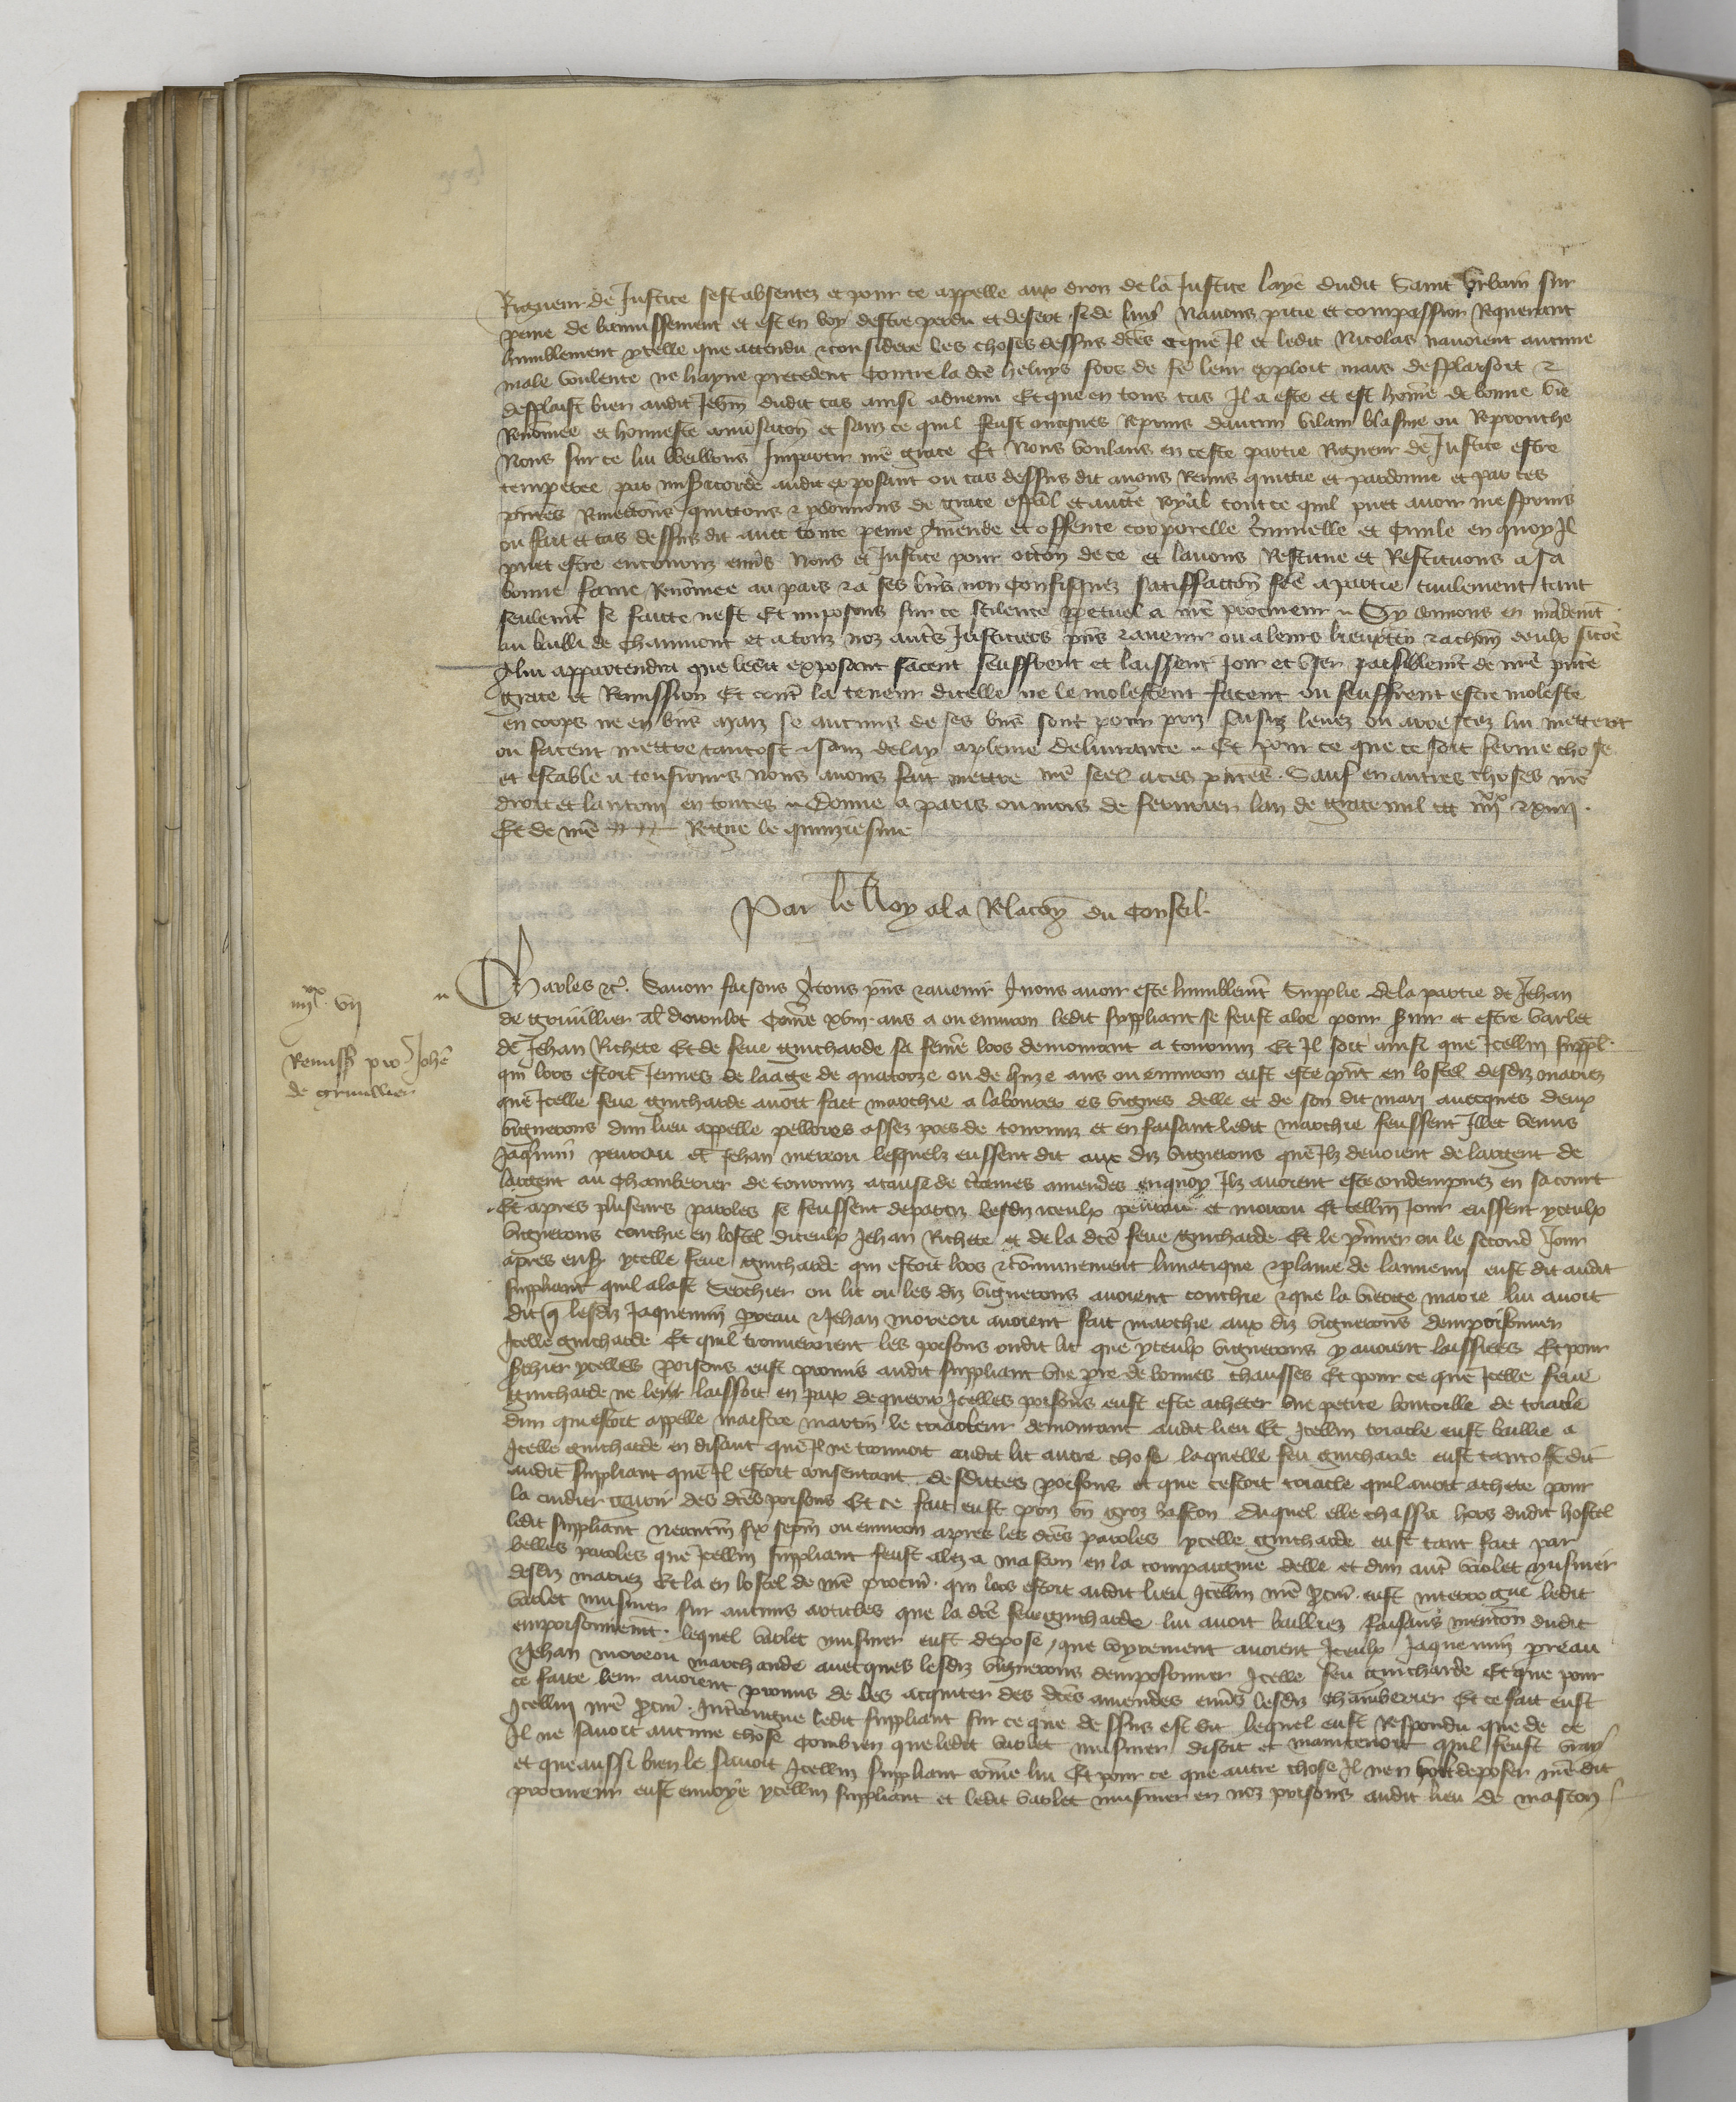 Rigueur de Justice sest absentez et pour ce appelle aux droiz de la Justice laye dudit Saint Urbain sur
peine de bannissement et est en voy destre perdu et desert se de lui Navons pitie et compassion Requerant
humblement ycelle que attendu et considere les choses dessus dces et que Il et ledit Nicolas navoient aucune
male voulente ne hayne precedent contre la dce heluys fors de fe leur exploit mais desplaisoit et
desplaist bien audit Jehan dudit cas ainsi advenu Et que en tous cas Il a este et est home de bonne vie
Renomee et honneste conversacon et sanz ce quil feust oncques Reprins daucun vilain blasme ou Reprouche
Nous sur ce lui vueillons Impartir nre grace Et Nous voulans en ceste partie Rigueur de Justice estre
tempree par misericorde audit exposant ou cas dessus dit avons Remis quittie et pardonne et par ces
pntes Remettons quittons et pdonnons de grace espal et aucte Royal tout ce quil puet avoir mespris
ou fait et cas dessus dit avec toute peine Amende et offense corporelle criminelle et Civile en quoy Il
puet estre encouruz envers Nous et Justice pour occon de ce et lavons Restitue et Restituons a sa
bonne fame Renomee au pais et a ses biens non Confisquez satisfaction fce a partie civilement tant
seulemt se faicte nest Et imposons sur ce scilence ppetuel a nre procureur Sy donnons en mandemt
au bailli de Chaumont et a touz noz autres Justiciers pns et avenir ou a leurs lieuxten et a chun deulx sicoe
A lui appartendra que ledit exposant facent seuffrent et laissent Joir et user paisiblemt de nre pnte
grace et Remission Et contre la teneur dicelle ne le molestent facent ou seuffrent estre moleste
en corps ne en biens maiz se aucuns de ses biens sont pour prins saisiz levez ou arrestez lui mettent
ou facent mettre tantost et sanz delay a plaine delivrance Et pour ce que ce soit ferme chose
et estable a tousjours Nous avons fait mettre nre seel a ces pntes Sauf en autres choses nre
droit et lautrui en toutes Donne a paris ou mois de fevrier lan de grace mil ccc iiiixx et xiiii
Et de nre Regne le quinziesme
Par le Roy a la Relacon du Conseil
iiiixx vii
Remiss pro Johe
de gruvillier
Charles etc. Savoir faisons A tous pns et avenir A nous avoir este humblemt Supplie de la partie de Jehan
de gruvillier Come xviii ans a ou environ ledit suppliant se feust aloe pour servir et estre varlet
de Jehan Richete Et de feue guicharde sa feme lors demourant a tournuz Et Il soit ainsi que Icellui suppl
qui lors estoit Jeunes de laage de quatorze ou de quinze ans ou environ eust este pnt en lostel desdiz mariez
que Icelle feue guicharde avoit fait marchie a labourer es vignes delle et de son dit mari avecques deux
vignerons dun lieu appelle pellores assez pres de tournuz et en faisant ledit marchie feussent Illec venus
Jaquemin preveau et Jehan moreau lesquelz eussent dit aux diz vignerons que Ilz devoient de largent de
largent au Chamberier de tournuz a cause de certaines amendes en quoy Ilz avoient este condempnez en sa court
Et apres pluseurs paroles se feussent departiz lesdiz iceulx preveau et moreau Et cellui Jour eussent yceulx
vignerons couchie en lostel diceulx Jehan Richete et de la dce feue guicharde Et le premier ou le second Jour
apres ensuiv ycelle feue guicharde qui estoit lors communement lunatique eust dit audit
suppliant quil alast Serchier ou lit ou les diz vignerons avoient couchie et que la vierge marie lui avoit
dit que lesdiz Jaquemin preveau et Jehan moreau avoient fait marchie aux diz vignerons dempoisonner
Icelle guicharde Et quil trouveroient les poisons oudit lit que yceulx vignerons y avoient laissiees Et pour
serchier ycelles poisons eust promis audit suppliant une pre de bonnes chausses Et pour ce que Icelle feue
guicharde ne leur laissoit en paix de querir Icelles poisons eust este acheter une petite bouteille de triacle
dun qui estoit appelle maistre martin le triacleur demourant audit lieu Et Icellui triacle eust baillie a
Icelle guicharde en disant que Il ne trouvoit oudit lit autre chose laquelle feu guicharde eust tantost dit
audit suppliant que Il estoit consentant desdittes poisons et que cestoit triacle quil avoit achete pour
la cuidier garir des dces poisons Et ce fait eust prins un groz baston duquel elle chassa hors dudit hostel
ledit suppliant Neantm six sepm ou environ apres les dces paroles ycelle guicharde eust tant fait par
belles paroles que Icellui suppliant feust alez a mascon en la compaignie delle et dun autre varlet musnier
desdiz mariez Et la en lostel de nre procur qui lors estoit audit lieu Icellui nre procur eust interrogue ledit
varlet musnier sur aucuns articles que la dce feue guicharde lui avoit bailliez faisans mencion dudit
empoisonnemt lequel varlet musnier eust depose que vrayement avoient Iceulx Jaquemin preau
et Jehan moreau marchande avecques lesdiz vignerons dempoisonner Icelle feu guicharde Et que pour
ce faire leur avoient promis de les acquiter des dces amendes envers lesdiz chamberier Et ce fait eust
Icellui nre procur Interrogue ledit suppliant sur ce que dessus est dit lequel eust Respondu que de ce
Il ne savoit aucune chose Combien que ledit varlet musnier disoit et maintenoit quil feust vray
et que aussi bien le savoit Icellui suppliant come lui Et pour ce que autre chose Il nen volt deposer nre dit
procureur eust envoye ycellui suppliant et ledit varlet musnier en noz prisons audit lieu de mascon